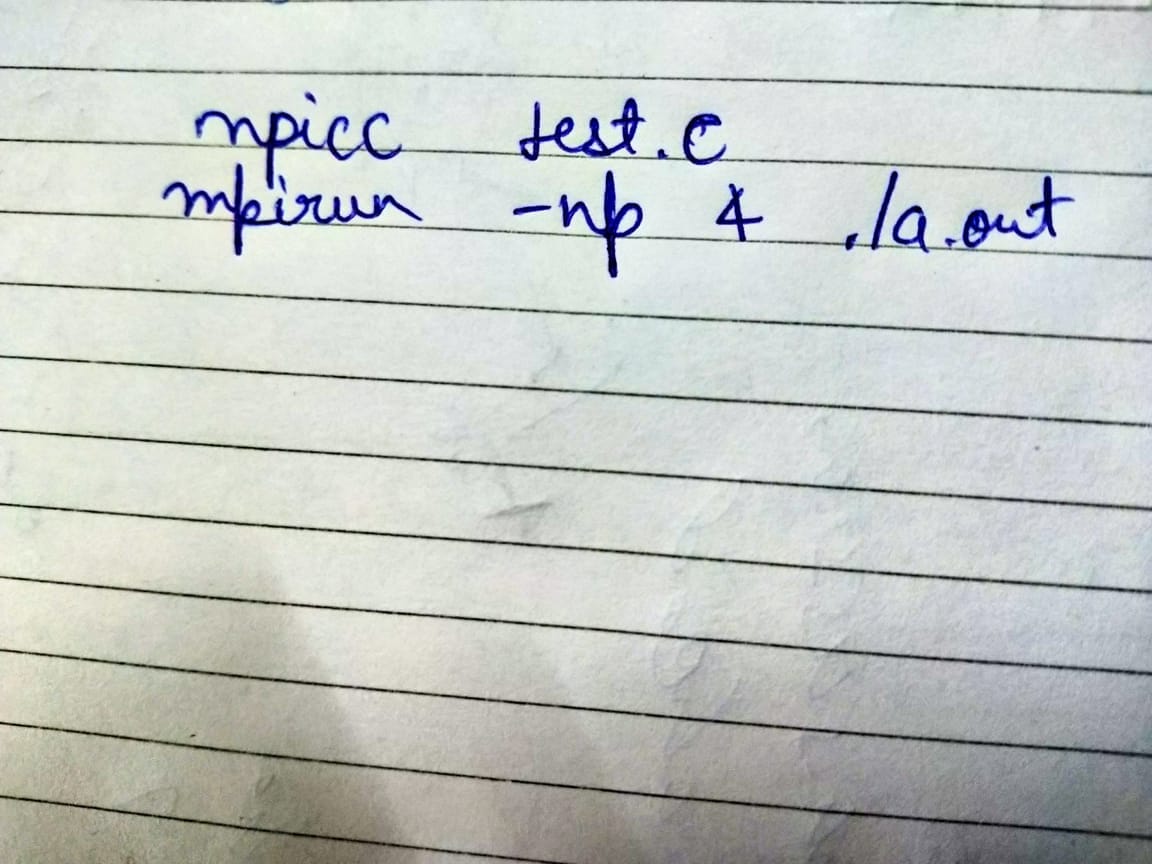 mpicc test.c
mpirun -np 4 ./a.out